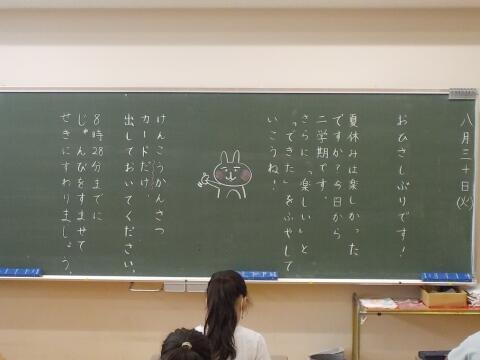 八月三十日(火)
おひさしぶりです!
夏休みは楽しかった
ですか?今日から
二学期です。
さらに、「楽しい」と
「できた」をふやして
いこうね!
けんこうかんさつ
カードだけ、
出しておいてください。
8時28分までに
じゅんびをすませて
せきにすわりましょう。